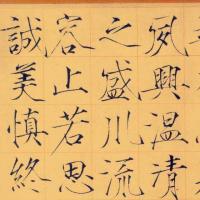 夙興溫清
之盛川流
容止若思
誠美慎終